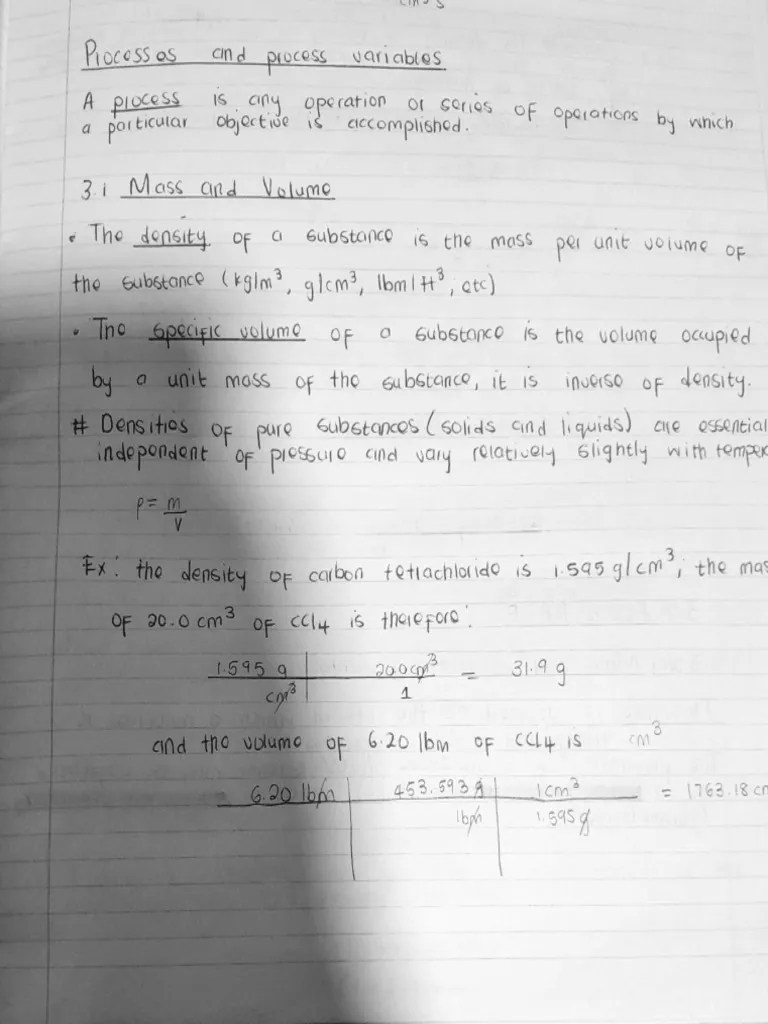 Processes and process variables
A process is any operation or series of operations by which
a particular objective is accomplished.
3.1 Mass and Volume
• The density of a substance is the mass per unit volume of
the substance (kg/m³, g/cm³, lbm/ft³, etc)
• The specific volume of a substance is the volume occupied
by a unit mass of the substance, it is inverse of density.
# Densities of pure substances (solids and liquids) are essential
independent of pressure and vary relatively slightly with temper
ρ = m
V
Ex: the density of carbon tetrachloride is 1.595 g/cm³, the mas
of 20.0 cm³ of CCl4 is therefore:
1.595 g | 20.0 cm³ = 31.9 g
cm³ | 1
and the volume of 6.20 lbm of CCl4 is cm³
6.20 lbm | 453.593 g | 1 cm³ = 1763.18 cm
lbm | 1.595 g